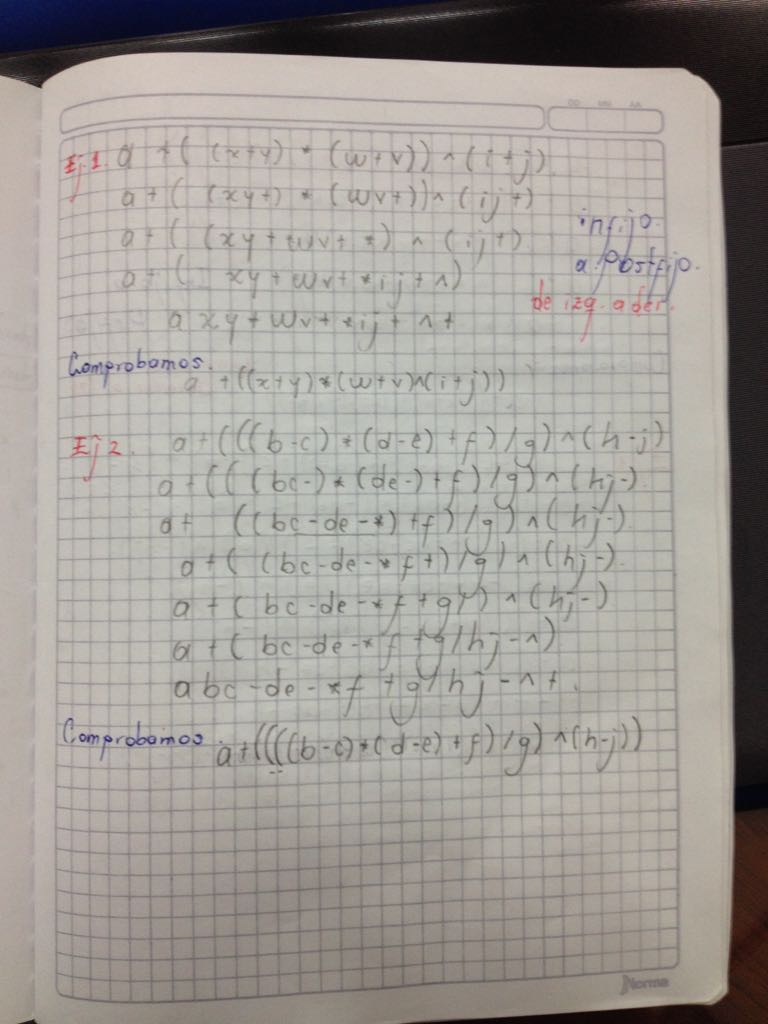 DD MM AA
Ej 1. a + ( (x+y) * (w+v)) ^ (i+j)
a + ( (xy+) * (wv+)) ^ (ij+)
infijo.
a + ( (xy+wv+*) ^ (ij+)
a postfijo.
a + ( xy+wv+*ij+^)
de izq. a der.
a xy+wv+*ij+^+
Comprobamos.
a + ((x+y)*(w+v)^(i+j))
Ej 2. a + (((b-c)*(d-e)+f)/g)^(h-j)
a + (((bc-)*(de-)+f)/g)^(hj-)
a + ((bc-de-*)+f)/g)^(hj-)
a + ( (bc-de-*f+)/g)^(hj-)
a + ( bc-de-*f+g/)^(hj-)
a + ( bc-de-*f+g/hj-^)
a bc-de-*f+g/hj-^+.
Comprobamos a + ((((b-c)*(d-e)+f)/g)^(h-j))
Norma